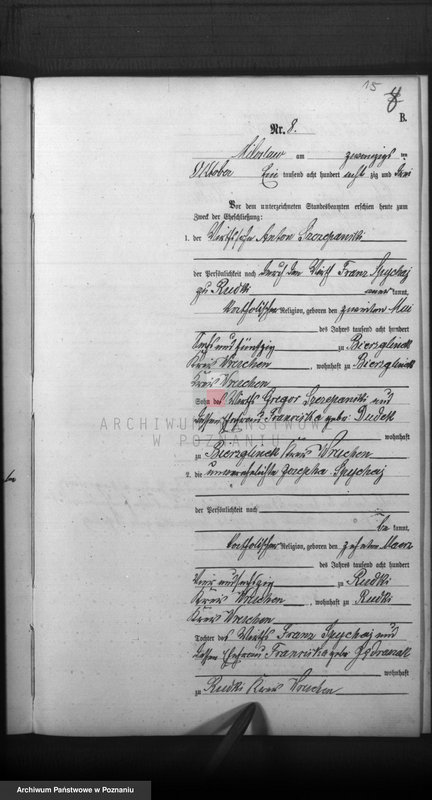 15
8
B.
Nr. 8.
Miloslaw am zwanzigsten
Oktober Ein tausend acht hundert achtzig und drei
Vor dem unterzeichneten Standesbeamten erschien heute zum
Zweck der Eheschließung:
1. der Wirthssohn Anton Szczepanski
der Persönlichkeit nach durch den Wirth Franz Spychaj
zu Rudki kannt,
katholischer Religion, geboren den zweiten Mai
des Jahres tausend acht hundert
sechs und fünfzig zu Bierzglinek
Kreis Wreschen, wohnhaft zu Bierzglinek
Kreis Wreschen
Sohn des Wirths Gregor Szczepanski und
dessen Ehefrau Franciska geb. Dudek
wohnhaft
zu Bierzglinek Kreis Wreschen
2. die unverehelichte Josepha Spychaj
der Persönlichkeit nach
be kannt,
katholischer Religion, geboren den zehnten Maerz
des Jahres tausend acht hundert
vier und sechzig zu Rudki
Kreis Wreschen, wohnhaft zu Rudki
Kreis Wreschen
Tochter des Wirths Franz Spychaj und
dessen Ehefrau Franciska geb.
wohnhaft
zu Rudki Kreis Wreschen
ARCHIWUM PAŃSTWOWE
W POZNANIU
Archiwum Państwowe w Poznaniu